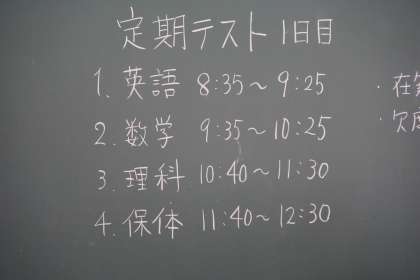 定期テスト 1日目
1. 英語 8:35～9:25
2. 数学 9:35～10:25
3. 理科 10:40～11:30
4. 保体 11:40～12:30
・在
・欠席